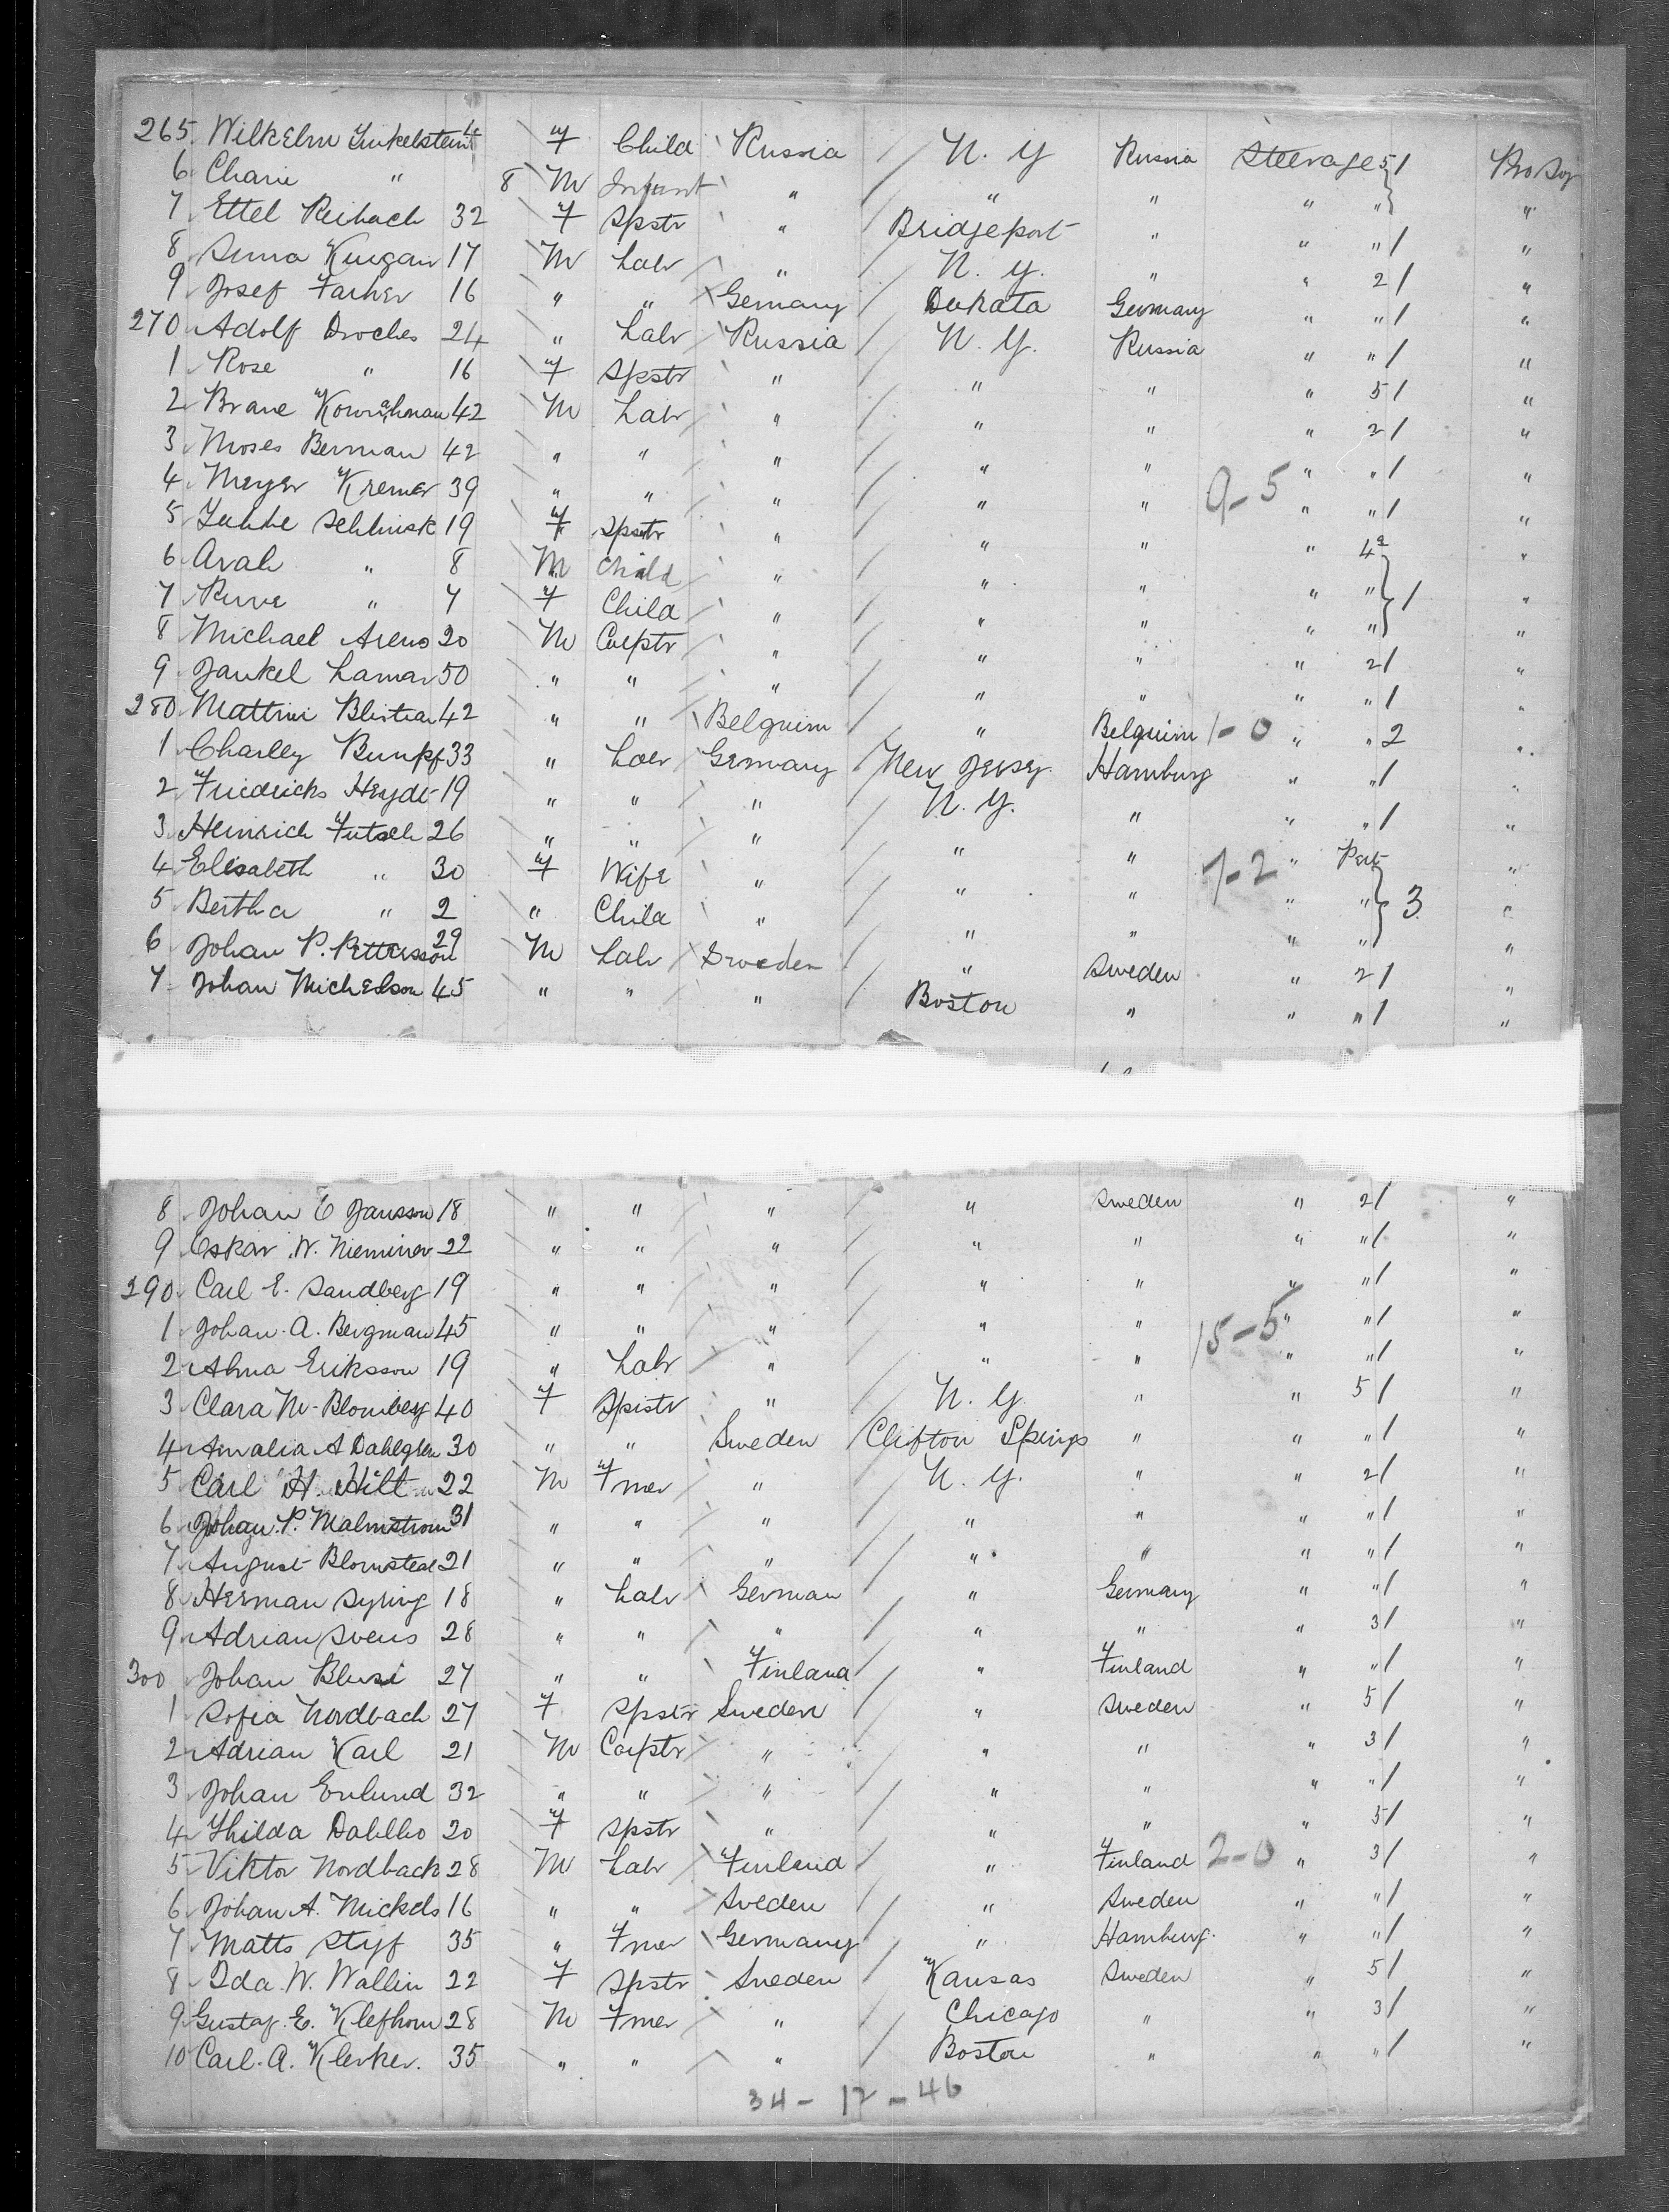 265 Wilhelm Finkelstein 4 F Child Russia / N. Y Russia Steerage 5 / Pro Soj
6 Chane " 8 M Infant " / " " " " "
7 Ettel Reibach 32 F Spstr " / Bridgeport " " " / "
8 17 M Labr " / N. Y. " " 2 / "
9 Josef Farher 16 " " Germany / Dakata Germany " " / "
270 Adolf Droches 24 " Labr Russia / N. Y. Russia " " / "
1 Rose " 16 F Spstr " / " " " 5 / "
2 Brane 42 M Labr " / " " " 2 / "
3 Moses Berman 42 " " " / " " " " / "
4 Meyer Kremer 39 " " " / " " 9-5 " " / "
5 19 F Spstr " / " " " 4 "
6 Arah " 8 M Child " / " " " " "
7 " 7 F Child " / " " " " / "
8 Michael Arens 20 M Carptr " / " " " 2 / "
9 Jankel Lamar 50 " " " / " " " " / "
280 42 " " Belguim / " Belguim 1-0 " " 2 "
1 Charley Bumpf 33 " Labr Germany / New Jersey Hamburg " " / "
2 Friedrichs Heydt 19 " " " / N. Y. " " " / "
3 Heinrich Futsch 26 " " " / " " " Part "
4 Elisabeth " 30 F Wife " / " " 7-2 " " 3 "
5 Bertha " 2 " Child " / " " " " "
6 Johan P. Pettersson 29 M Labr Sweden / " Sweden " 2 / "
7 Johan Michelson 45 " " " / Boston " " " / "
8 Johan E Jansson 18 " " " / " Sweden " 2 / "
9 Oskar W. Nieminer 22 " " " / " " " " / "
290 Carl E. Sandberg 19 " " " / " " " " / "
1 Johan A. Bergman 45 " " " / " " 15-5 " " / "
2 Alma Eriksson 19 " Labr " / " " " " / "
3 Clara M. Blomberg 40 F Spistr " / N. Y. " " 5 / "
4 Amalia A Dahlgren 30 " " Sweden / Clifton Springs " " " / "
5 Carl H. Hilt 22 M Fmer " / N. Y. " " 2 / "
6 Johan P. Malmstrom 31 " " " / " " " " / "
7 August Blomstedt 21 " " " / " " " " / "
8 Herman Syring 18 " Labr German / " Germany " " / "
9 Adrian Svens 28 " " " / " " " 3 / "
300 Johan Blusi 27 " " Finland / " Finland " " / "
1 Sofia Nordbach 27 F Spstr Sweden / " Sweden " 5 / "
2 Adrian Karl 21 M Carptr " / " " " 3 / "
3 Johan Enlund 32 " " " / " " " " / "
4 Hhilda Dahlbo 20 F Spstr " / " " " 5 / "
5 Viktor Nordback 28 M Labr Finland / " Finland 2-0 " 3 / "
6 Johan A. Mickels 16 " " Sveden / " Sweden " " / "
7 Matts Styf 35 " Fmer Germany / " Hamburg. " " / "
8 Ida W. Wallin 22 F Spstr Sweden / Kansas Sweden " 5 / "
9 Gustaf E. Klefhom 28 M Fmer " / Chicago " " 3 / "
10 Carl A. Klerker. 35 " " " / Boston " " " / "
34 - 12 - 46